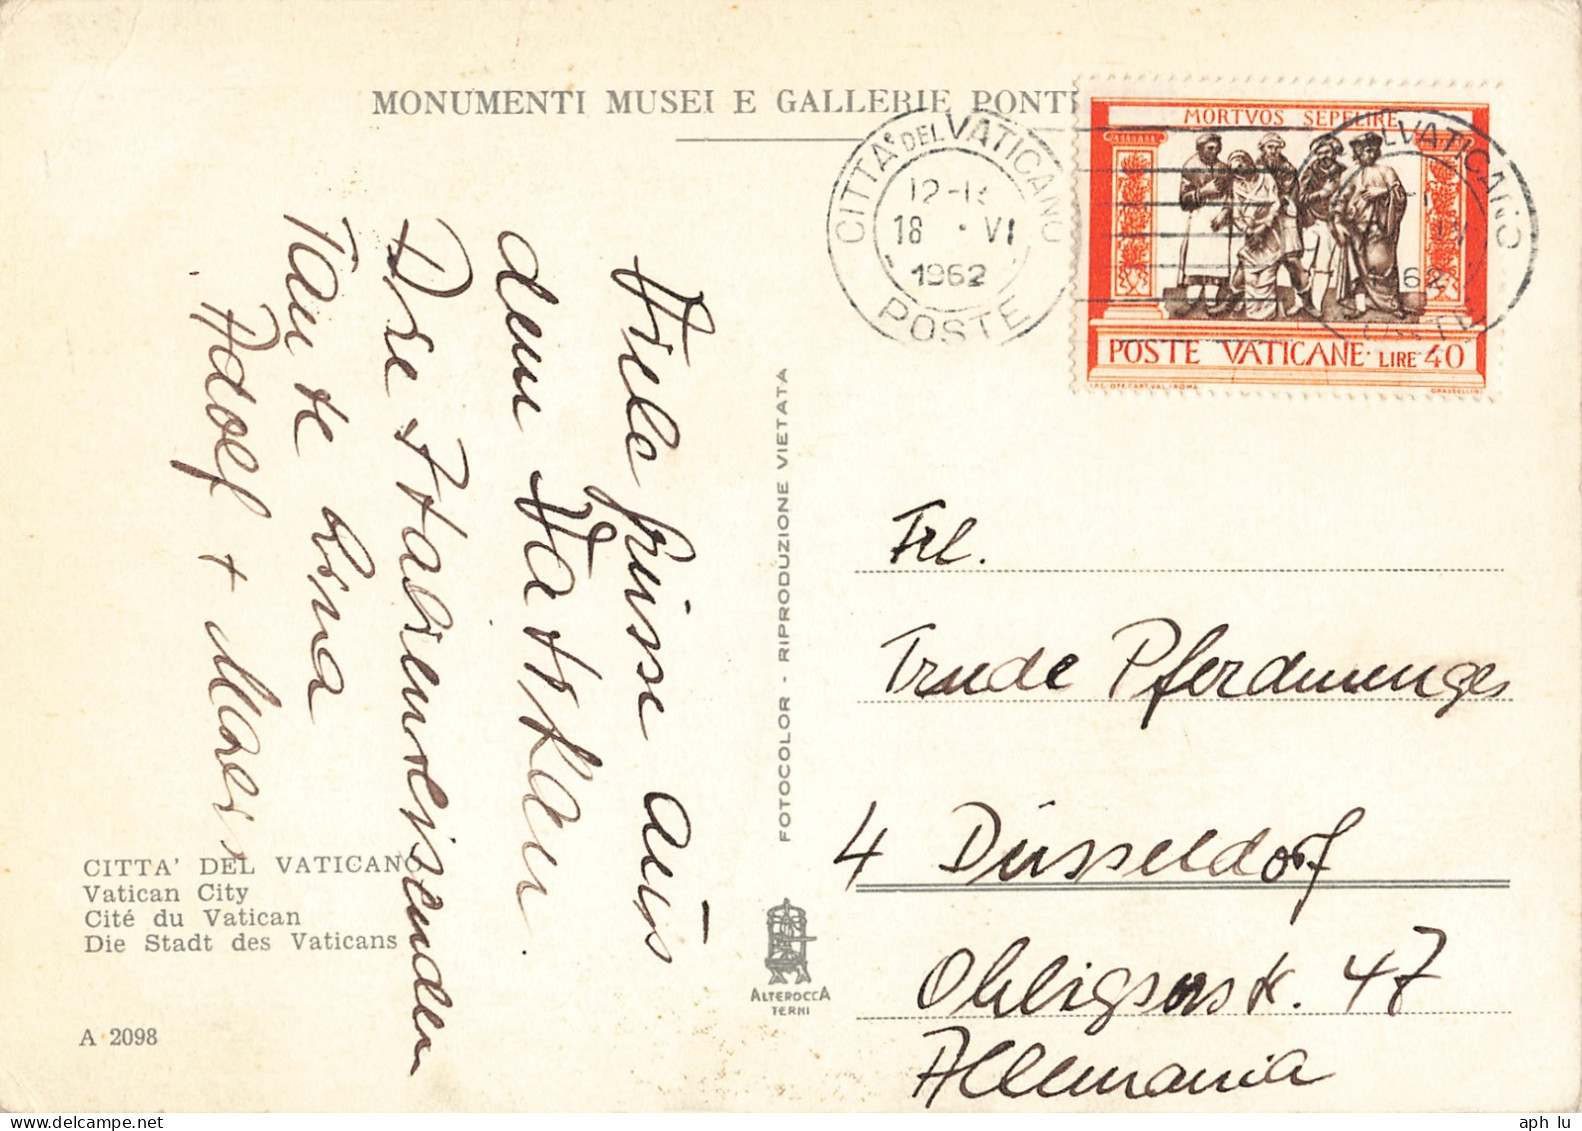 MONUMENTI MUSEI E GALLERIE PONTI
CITTA' DEL VATICANO
12-1
18 · VI
1962
POSTE
MORTVOS SEPELIRE
POSTE VATICANE · LIRE 40
IST. POL. CART. VAL. ROMA
GRASSELLINI
DEL VATICANO
62
Viele Grüsse aus
dem Vatikan.
Die Italienreisenden
Tante
Adolf + 
Frl.
Trude Pferdmenges
4 Düsseldorf
Ohligserstr. 47
Allemania
FOTOCOLOR - RIPRODUZIONE VIETATA
ALTEROCCA
TERNI
CITTA' DEL VATICANO
Vatican City
Cité du Vatican
Die Stadt des Vaticans
A 2098
aph lu